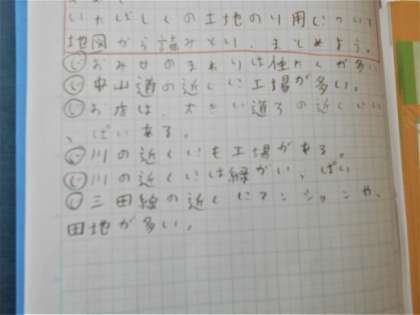 いたばしくの土地のり用について
地図から読みとり、まとめよう。
おみせのまわりは住たくが多い
中山道の近くに工場が多い。
お店は、大きい道ろの近くにい
、ぱいある。
川の近くにも工場がある。
川の近くには緑がい、ぱい
三田線の近くにマンションや、
田地が多い。